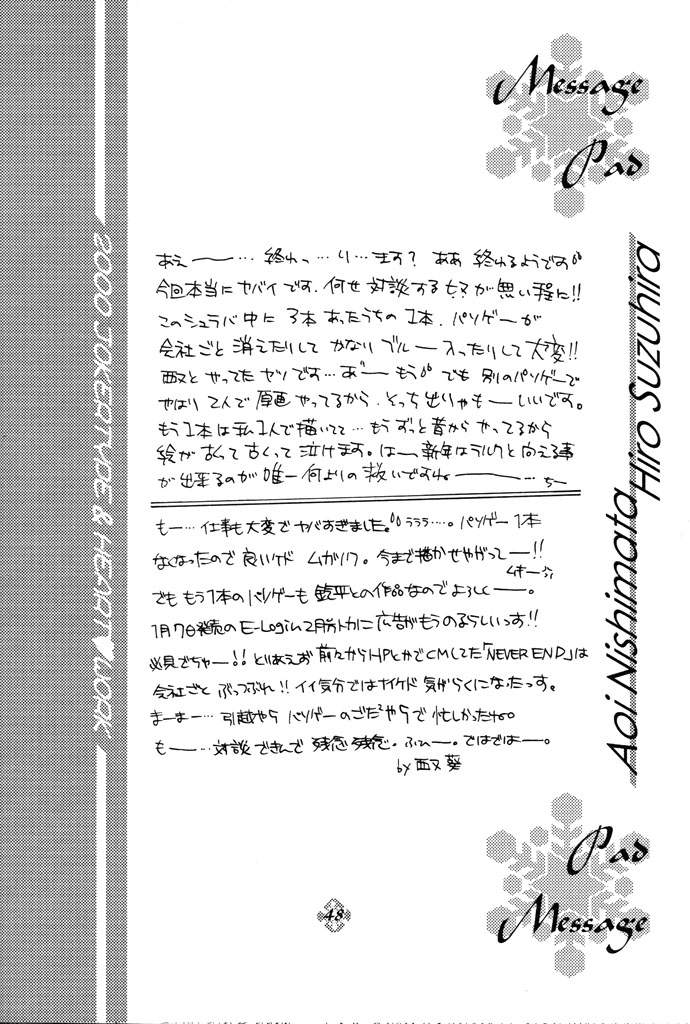 Message
Pad
あえー…終わっ…り…ます？ああ 終わるようです
今回本当にヤバイです．何せ 対談するヒマが無い程に!!
このシュラバ中に 3本あったうちの 1本．パソゲーが
会社ごと 消えたりして かなりブルー入ったりして大変!!
西又と やってたヤツです…あ゛ー もう でも 別のパソゲーで
やはり 2人で 原画 やってるから．そっち 出りゃも―いいです。
もう1本は 私1人で描いてて…もう ずっと昔から やってるから
絵が古くて古くって泣けます。はー、新年はラルクと向える事
が出来るのが 唯一何よりの救いですねー…
もー…仕事も大変でヤバすぎました。うううう…。パソゲー 1本
なくなったので 良いケド ムカツク。今まで描かせやがってー!!
ムキーっ
でも もう1本のパソゲーも 鈴平との作品なのでよろしくー。
1月7日発売の E-Login 2月号トカに広告がもうのるらしいっす!!
必見でちゃー!! とりあえず 前々からHPとかでCMしてた「NEVER END」は
会社ごと ぶっつぶれ!! イイ気分ではナイケド 気がらくになたっす。
まーまー…引越やら パソゲーのごたごたやらで 忙しかったね。
もー…対談できんで 残念残念。ふひー。ではではー。
by 西又 葵
Aoi Nishimata
Hiro Suzuhira
2000 JOKERTYPE & HEART♥WORK
Pad
Message
48